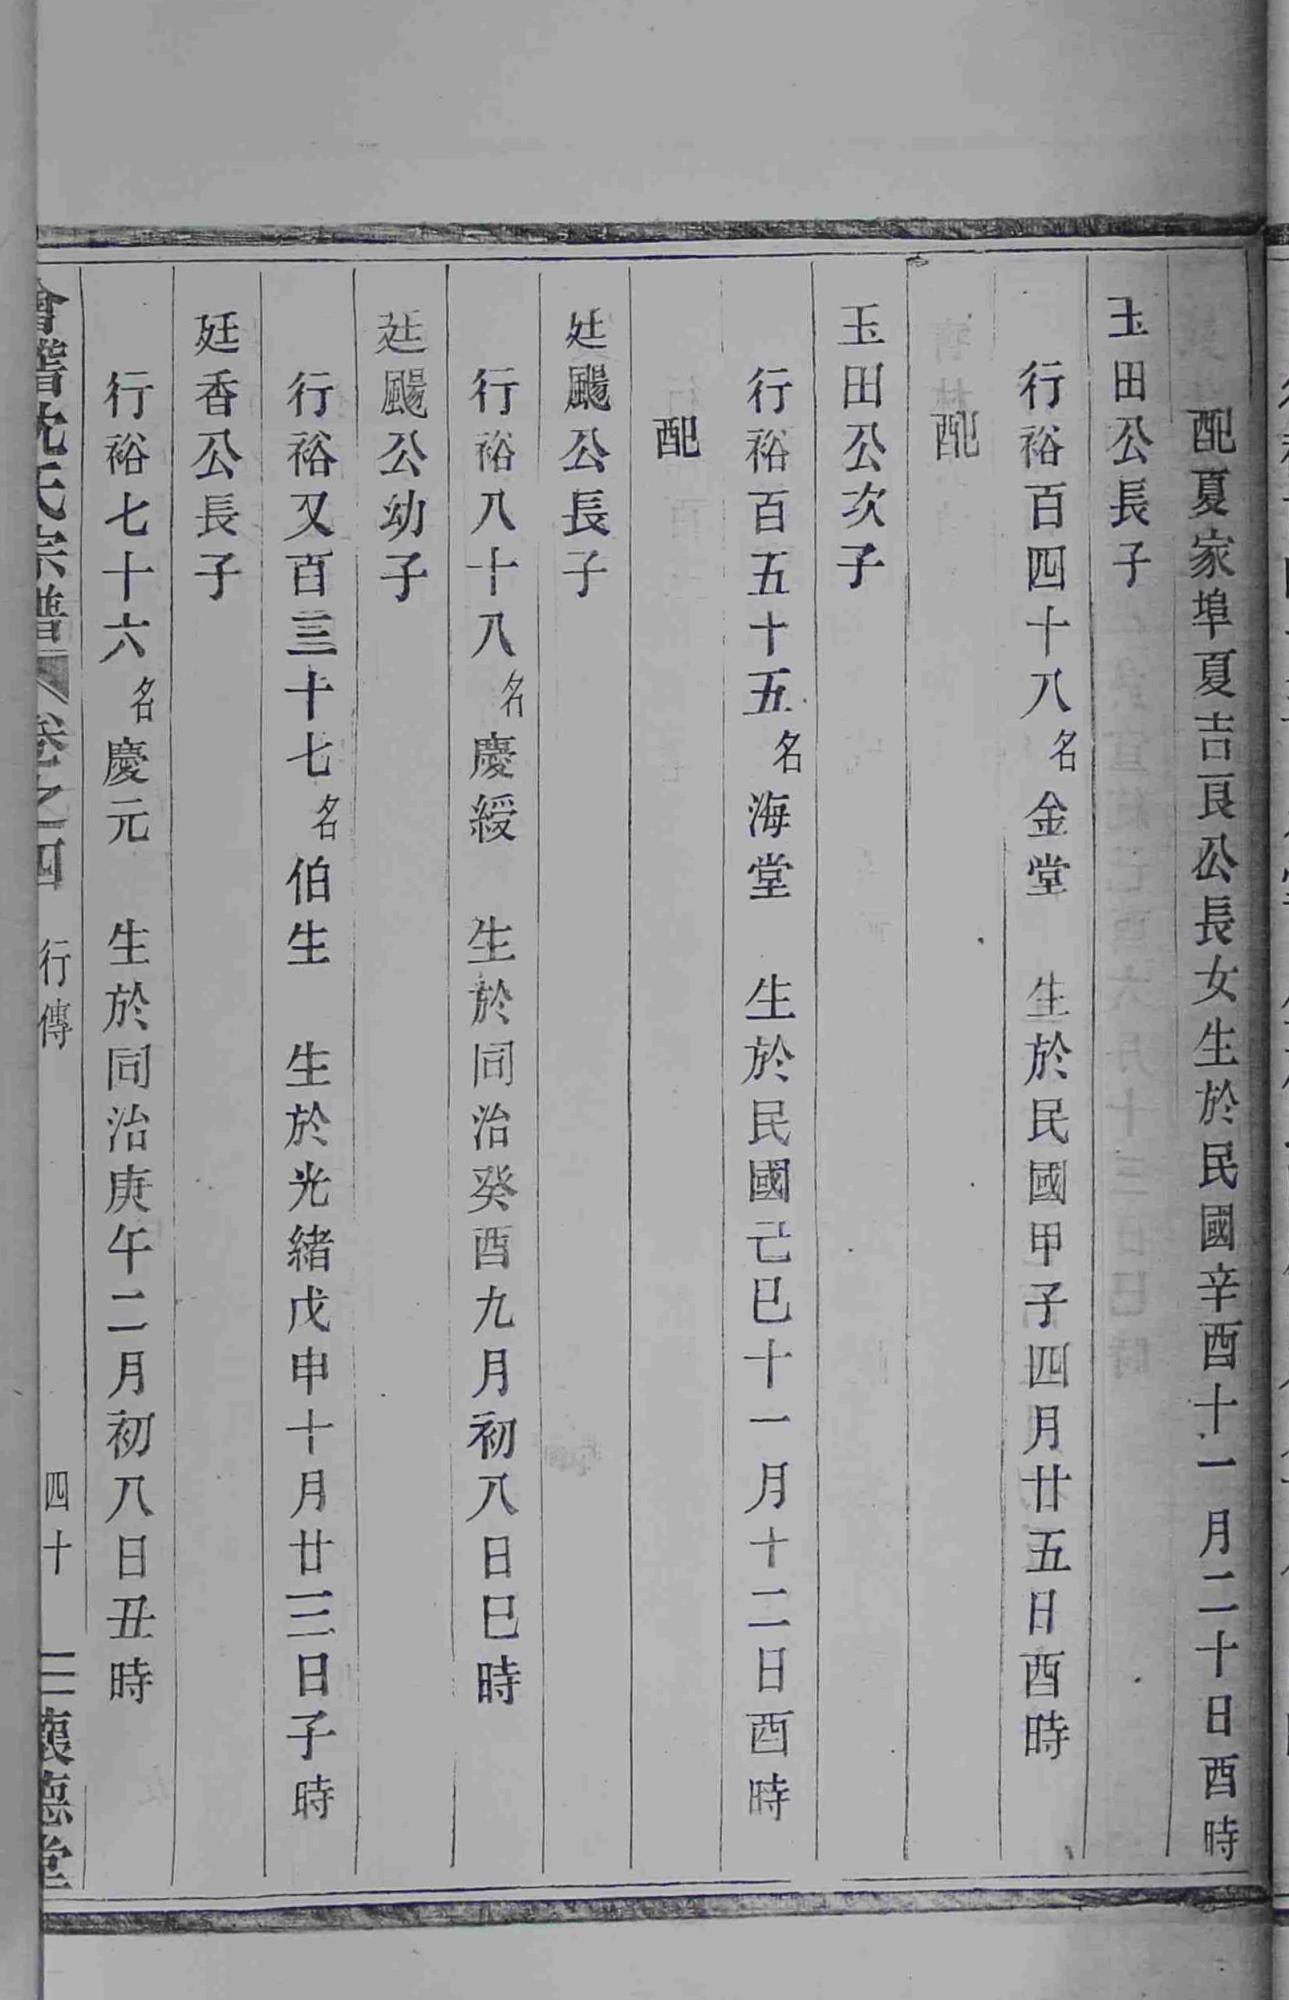 配夏家埠夏吉良公長女生於民國辛酉十一月二十日酉時
玉田公長子
行裕百四十八名金堂　生於民國甲子四月廿五日酉時
配
玉田公次子
行裕百五十五名海堂　生於民國己巳十一月十二日酉時
配
廷颺公長子
行裕八十八名慶綬　生於同治癸酉九月初八日巳時
廷颺公幼子
行裕又百三十七名伯生　生於光緒戊申十月廿三日子時
廷香公長子
行裕七十六名慶元　生於同治庚午二月初八日丑時
會稽沈氏宗譜　卷之四　行傳　四十　懷德堂